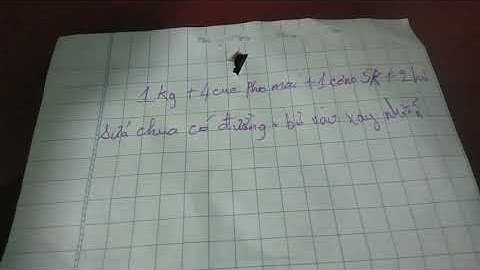 1 kg + 4 cục Pho mai + 1 công SK + 2 hủ
sữa chua có đường. bỏ vào xay nhuễn